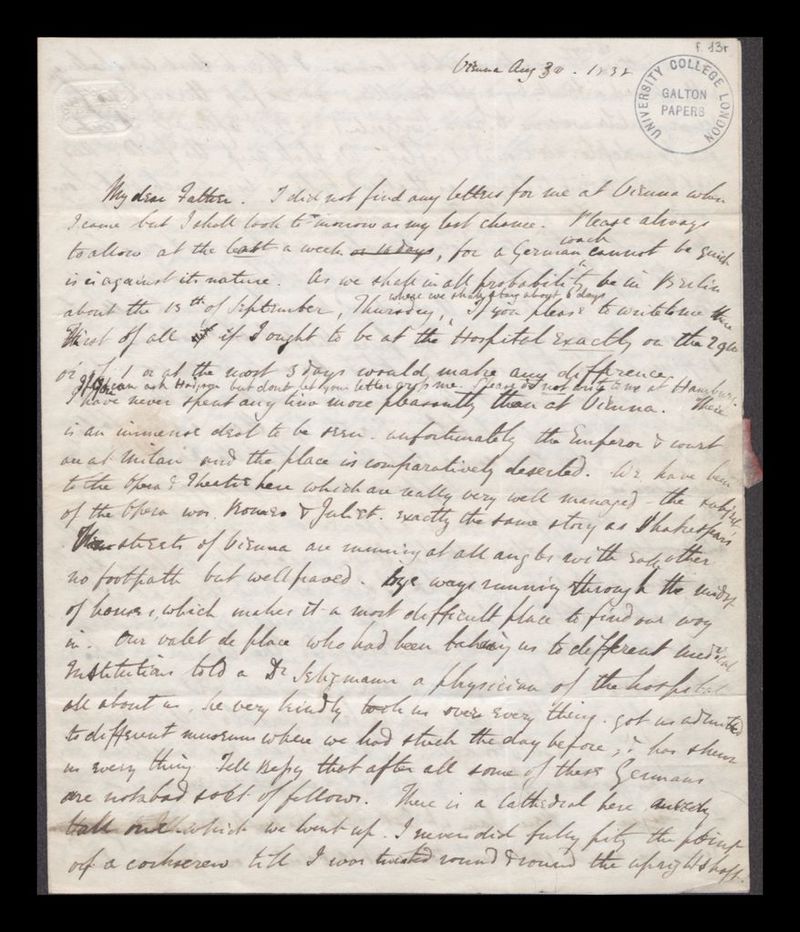 f. 13r
UNIVERSITY COLLEGE LONDON
GALTON
PAPERS
Vienna Aug 30. 1838
My dear Father. I did not find any letters for me at Vienna when
I came but I shall look tomorrow as my last chance. Please always
to allow at the least a week or 10 days, for a German coach cannot be quick
is is against its nature. As we shall in all probability be in Berlin
where we shall stay about 6 days
about the 13th of September, Thursday, If you please to write to me there
First of all if I ought to be at the Hospital exactly on the 29th
or if 1 or at the most 3 days would make any difference
If you can ask Hodgson but dont let your letter miss me. Please do not write to me at Hamburg.
I have never spent any time more pleasantly than at Vienna. There
is an immense deal to be seen. unfortunately the Emperor & court
are at Milan and the place is comparatively deserted. We have been
to the Opera & Theatre here which are really very well managed the subject
of the Opera was Romeo & Juliet. exactly the same story as Shakespear's
The streets of Vienna are running at all angles with each other
no footpath but well paved. bye ways running through the midst
of houses, which makes it a most difficult place to find our way
in. Our valet de place who had been taking us to different medical
Institutions told a Dr Seligmann a physician of the hospital
all about us, he very kindly took us over every thing. got us admitted
to different museums where we had stuck the day before, & has shewn
us every thing Tell Bessy that after all some of these Germans
are not a bad sort of fellows. There is a Cathedral here
tall one which we went up. I never did fully pity the point
of a corkscrew till I was twisted round & round the upright shaft.